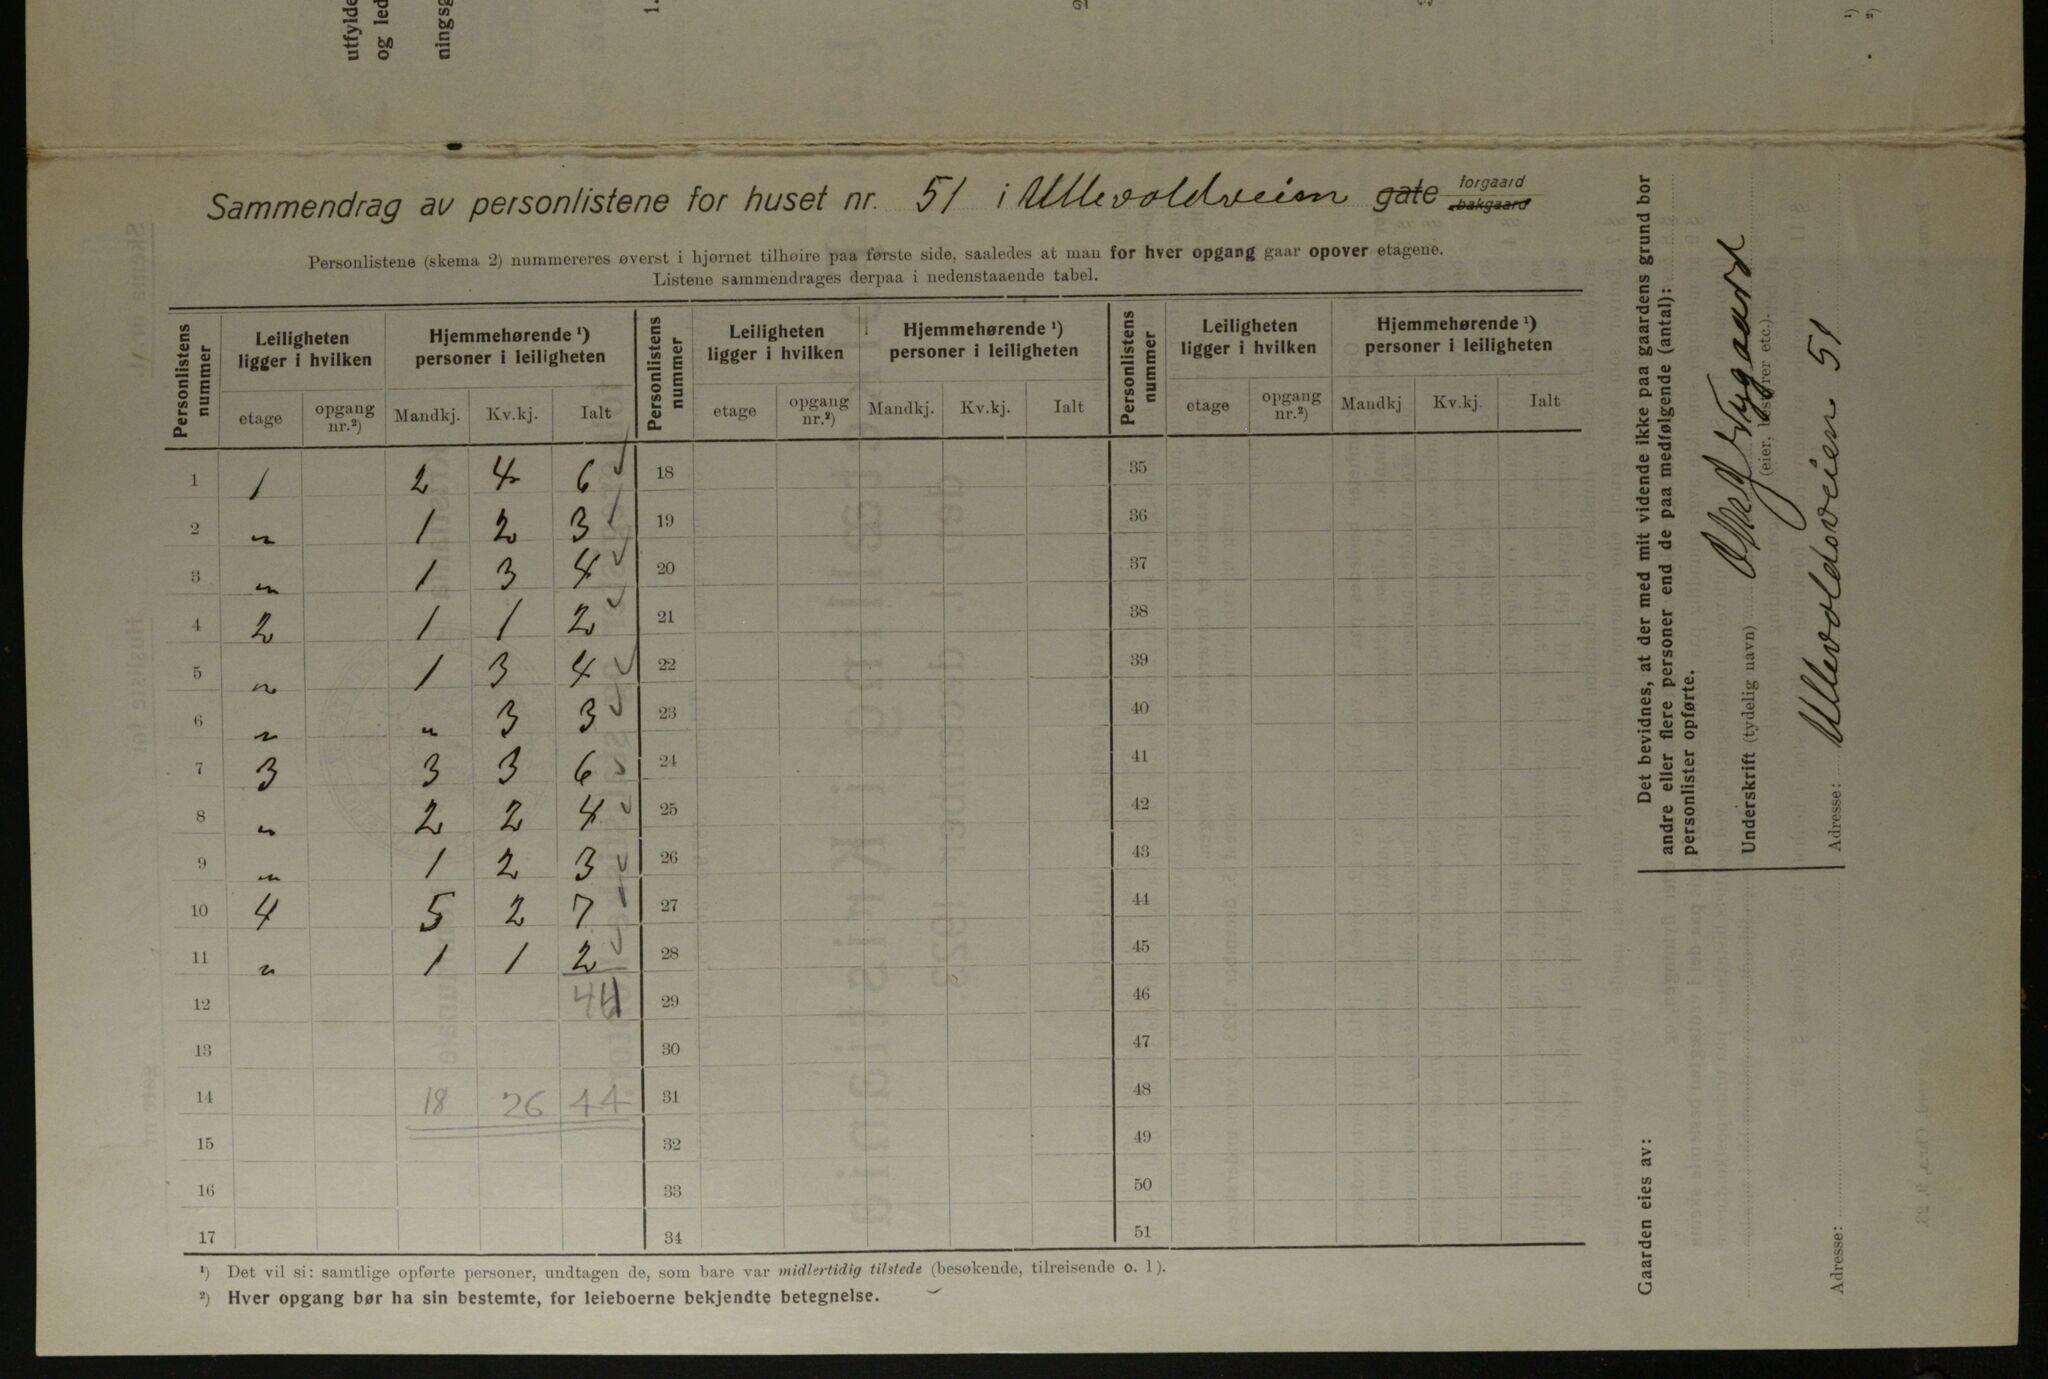 utfylde
og led
ningsg
1.
2
¹)
²)
Sammendrag av personlistene for huset nr. 51 i Ullevoldveien gate forgaard bakgaard
Personlistene (skema 2) nummereres øverst i hjørnet tilhøire paa første side, saaledes at man for hver opgang gaar opover etagene.
Listene sammendrages derpaa i nedenstaaende tabel.
Personlistens nummer | Leiligheten ligger i hvilken | Hjemmehørende ¹) personer i leiligheten | Personlistens nummer | Leiligheten ligger i hvilken | Hjemmehørende ¹) personer i leiligheten | Personlistens nummer | Leiligheten ligger i hvilken | Hjemmehørende ¹) personer i leiligheten
etage | opgang nr.²) | Mandkj. | Kv.kj. | Ialt | etage | opgang nr.²) | Mandkj. | Kv.kj. | Ialt | etage | opgang nr.²) | Mandkj | Kv.kj. | Ialt
1 | 1 | 2 | 4 | 6 ✓ | 18 | 35
2 | " | 1 | 2 | 3 ✓ | 19 | 36
3 | " | 1 | 3 | 4 ✓ | 20 | 37
4 | 2 | 1 | 1 | 2 ✓ | 21 | 38
5 | " | 1 | 3 | 4 ✓ | 22 | 39
6 | " | " | 3 | 3 ✓ | 23 | 40
7 | 3 | 3 | 3 | 6 ✓ | 24 | 41
8 | " | 2 | 2 | 4 ✓ | 25 | 42
9 | " | 1 | 2 | 3 ✓ | 26 | 43
10 | 4 | 5 | 2 | 7 ✓ | 27 | 44
11 | " | 1 | 1 | 2 ✓ | 28 | 45
12 | 44 | 29 | 46
13 | 30 | 47
14 | 18 | 26 | 44 | 31 | 48
15 | 32 | 49
16 | 33 | 50
17 | 34 | 51
¹) Det vil si: samtlige opførte personer, undtagen de, som bare var midlertidig tilstede (besøkende, tilreisende o. l).
²) Hver opgang bør ha sin bestemte, for leieboerne bekjendte betegnelse.
Det bevidnes, at der med mit vidende ikke paa gaardens grund bor
andre eller flere personer end de paa medfølgende (antal):
personlister opførte.
Underskrift (tydelig navn) Nygaard
(eier, bestyrer etc.).
Adresse: Ullevoldsveien 51
Gaarden eies av:
Adresse: